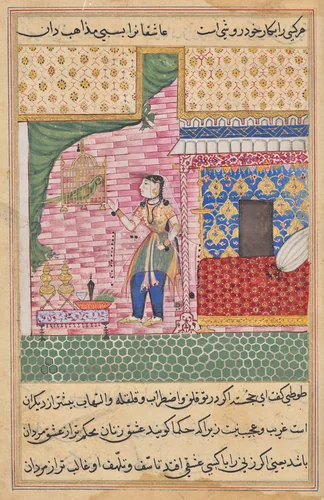 هر کسی را بکار خود روشی است عاشقانرا بسی مذاهب دان
طوطی گفت ای خجسته اگر در تو قلق و اضطراب و قلقله و التهاب بیشتر از دیگران
است غریب و عجیب نیست زیرا که حکما گویند عشق زنان محکم‌تر از عشق مردان
باشد یعنی اگر زنی را با کسی عشقی افتد تاسف و تلهف او غالب‌تر از مردان